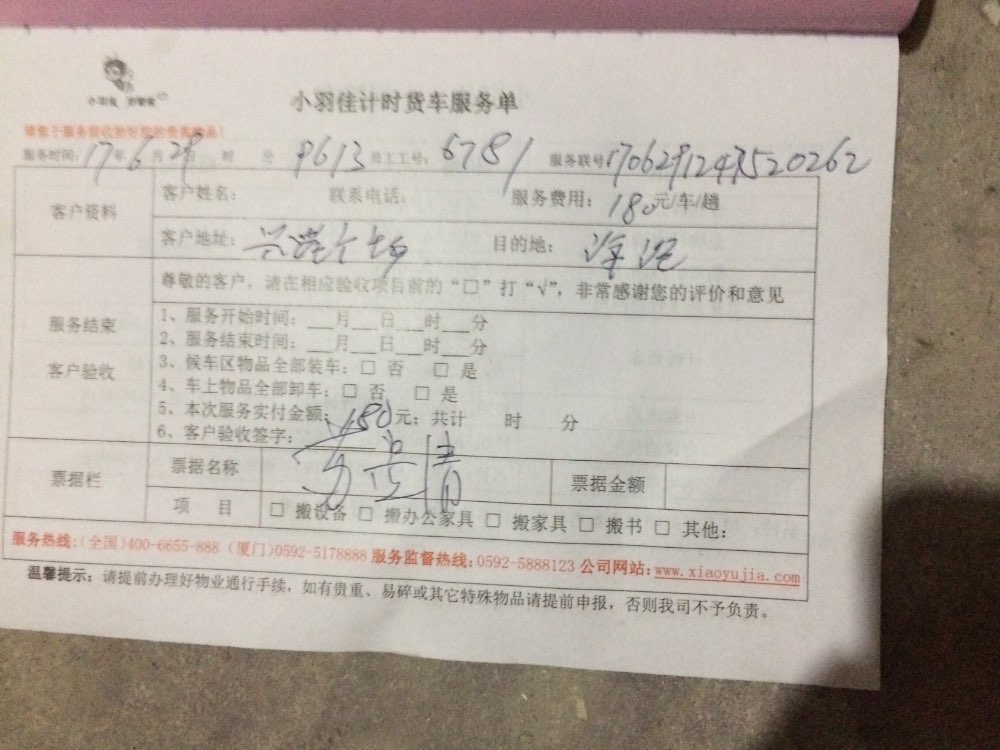 小羽佳计时货车服务单
服务时间:17年6月29日 时 分 P613 员工工号:5781 服务联号:
客户资料
客户姓名: 联系电话: 服务费用:180元/车/趟
客户地址: 目的地:
尊敬的客户,请在相应验收项目前的“□”打“√”,非常感谢您的评价和意见
服务结束
客户验收
1、服务开始时间:___月___日___时___分
2、服务结束时间:___月___日___时___分
3、候车区物品全部装车:□ 否 □ 是
4、车上物品全部卸车:□ 否 □ 是
5、本次服务实付金额:180元;共计 时 分
6、客户验收签字:
票据栏
票据名称 票据金额
项 目 □ 搬设备 □ 搬办公家具 □ 搬家具 □ 搬书 □ 其他:
服务热线:(全国)400-6655-888 (厦门)0592-5178888 服务监督热线:0592-5888123 公司网站:www.xiaoyujia.com
温馨提示:请提前办理好物业通行手续,如有贵重、易碎或其它特殊物品请提前申报,否则我司不予负责。